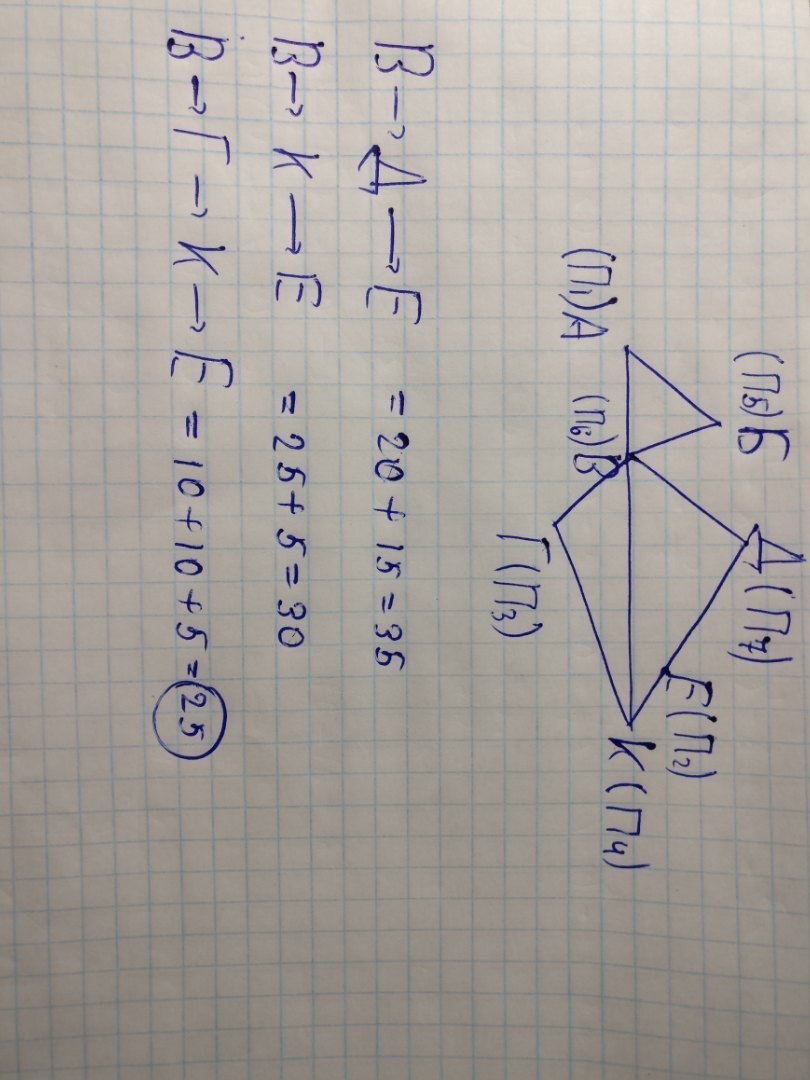 (П5)Б
Д(П7)
Е(П2)
(П1)А
(П6)В
К(П4)
Г(П3)
В → Д → Е = 20 + 15 = 35
В → К → Е = 25 + 5 = 30
В → Г → К → Е = 10 + 10 + 5 = 25